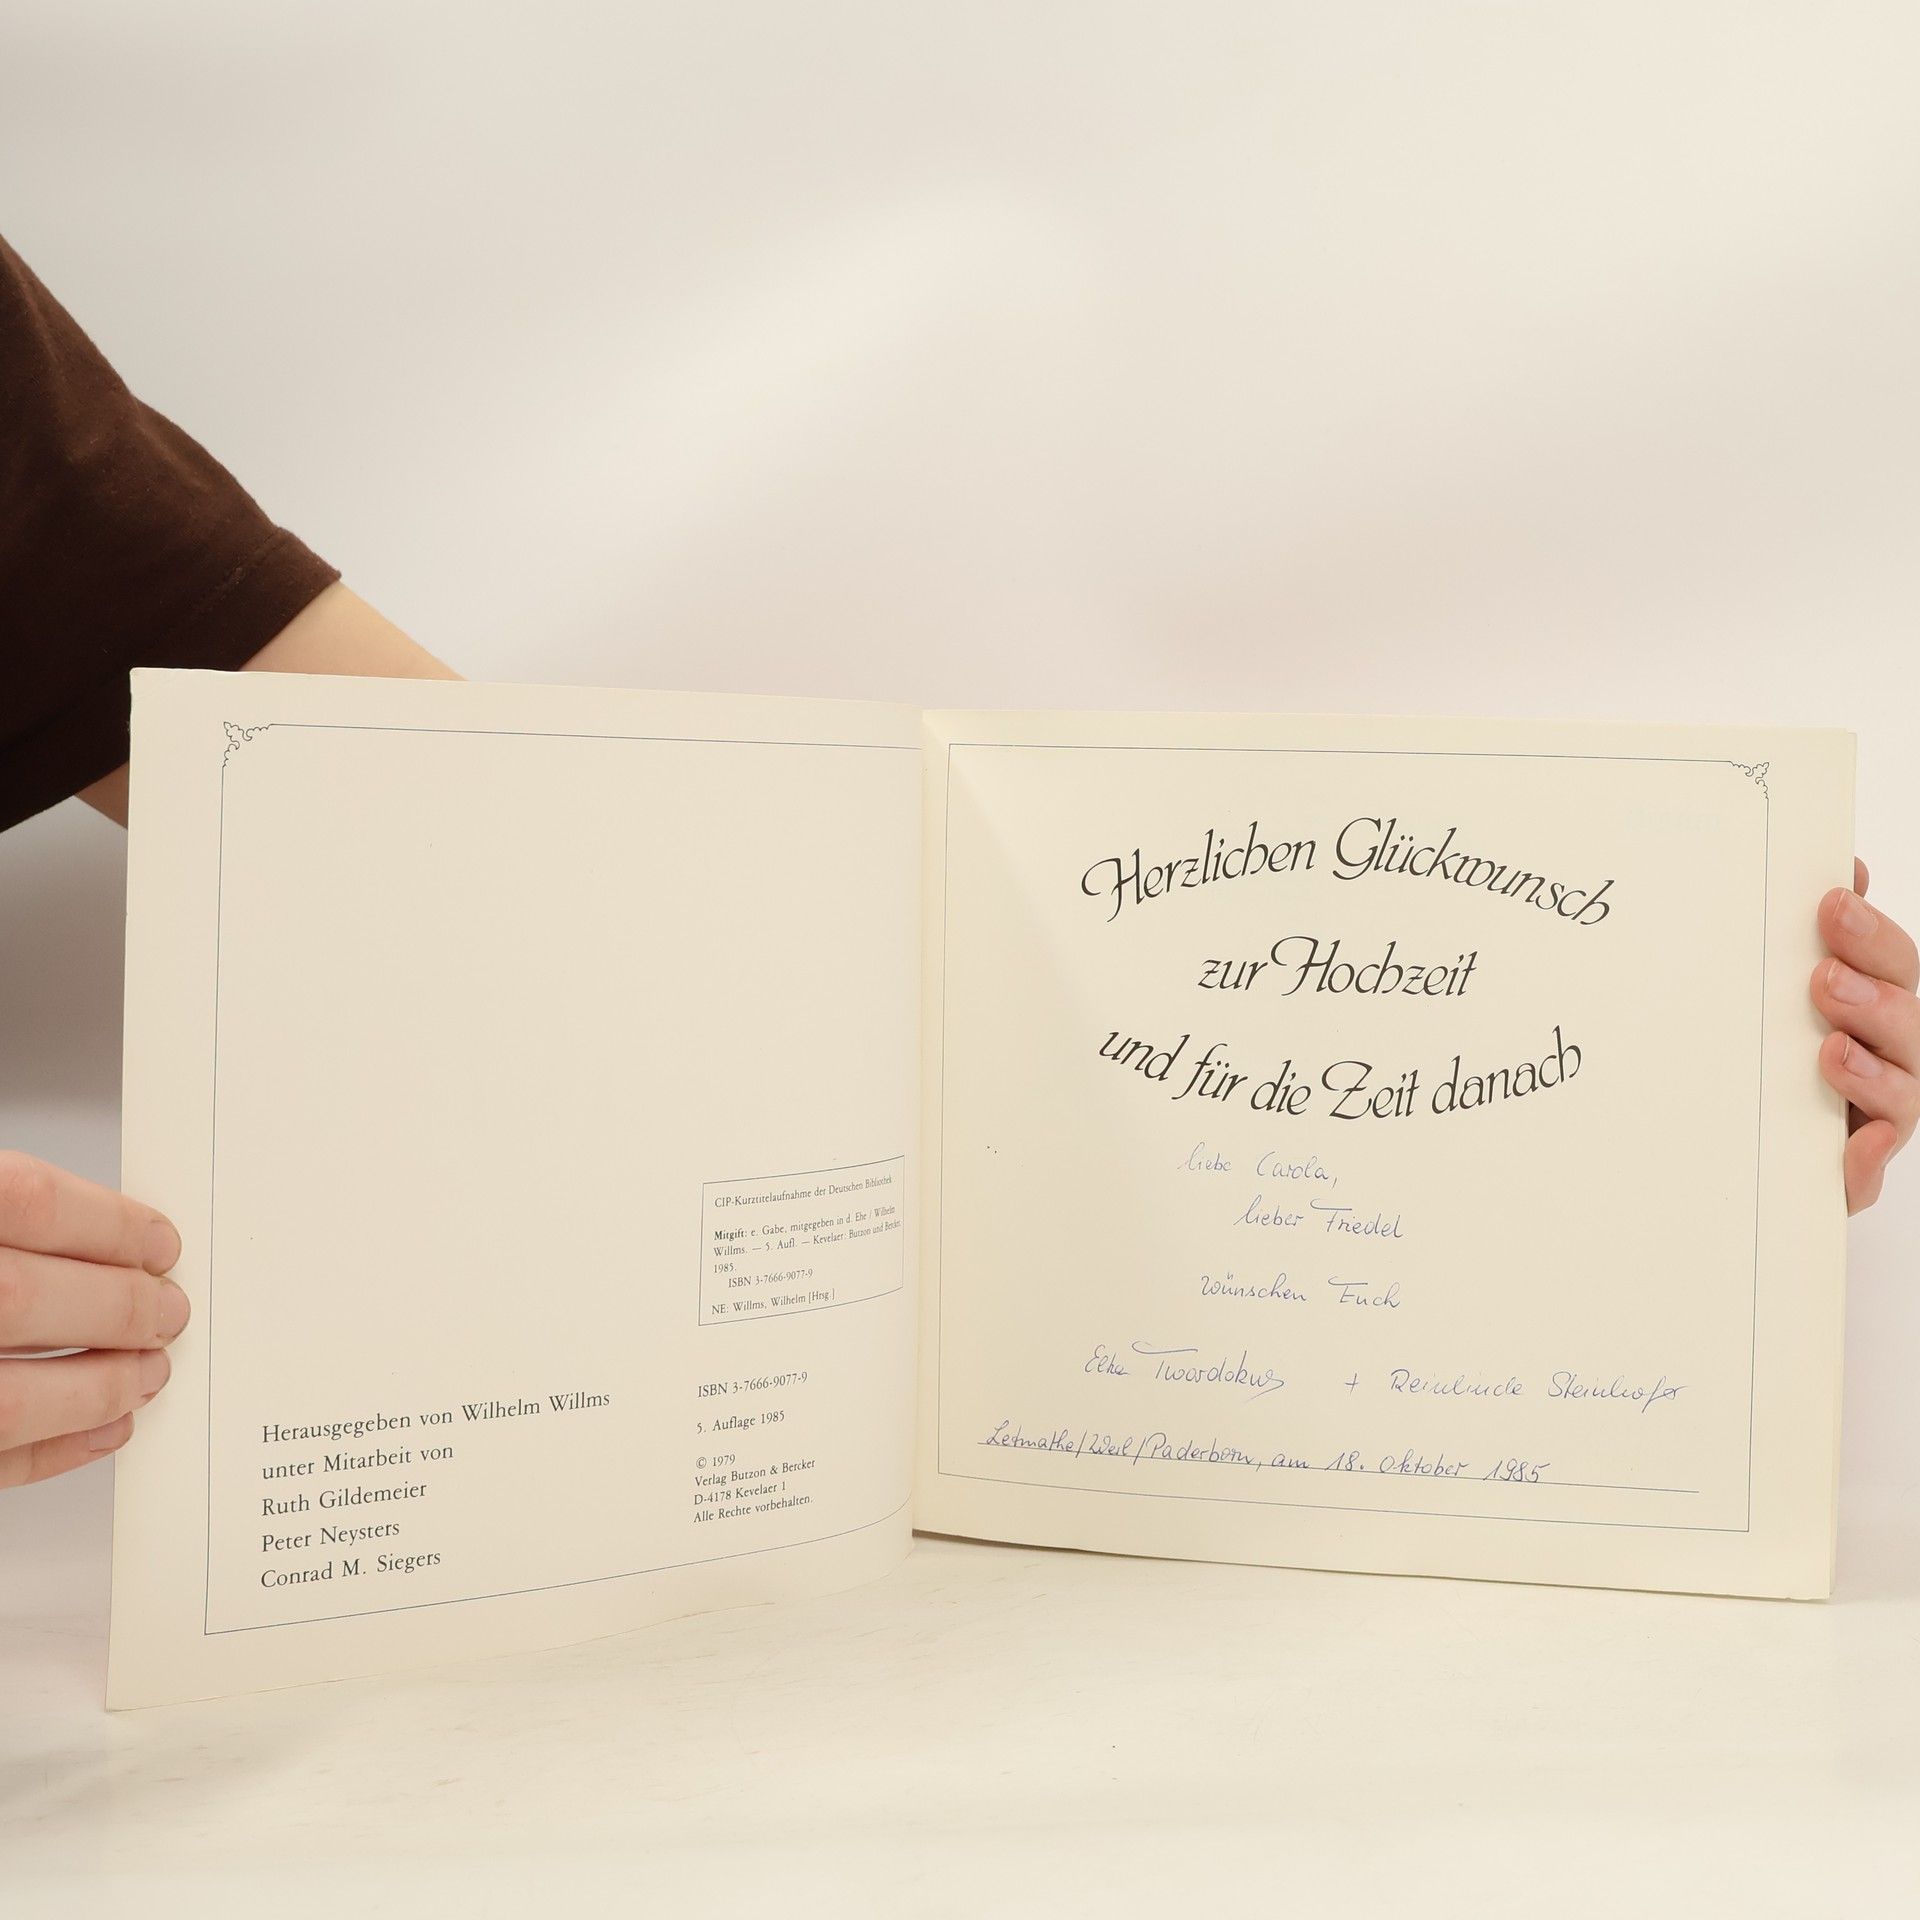 CIP-Kurztitelaufnahme der Deutschen Bibliothek
Mitgift: e. Gabe, mitgegeben in d. Ehe / Wilhelm
Willms. — 5. Aufl. — Kevelaer: Butzon und Bercker,
1985.
ISBN 3-7666-9077-9
NE: Willms, Wilhelm [Hrsg.]
Herausgegeben von Wilhelm Willms
unter Mitarbeit von
Ruth Gildemeier
Peter Neysters
Conrad M. Siegers
ISBN 3-7666-9077-9
5. Auflage 1985
© 1979
Verlag Butzon & Bercker
D-4178 Kevelaer 1
Alle Rechte vorbehalten.
Herzlichen Glückwunsch
zur Hochzeit
und für die Zeit danach
liebe Carola,
lieber Friedel
wünschen Euch
Elke Twardokus + Reinlinde Steinhofer
Letmathe/Werl/Paderborn, am 18. Oktober 1985